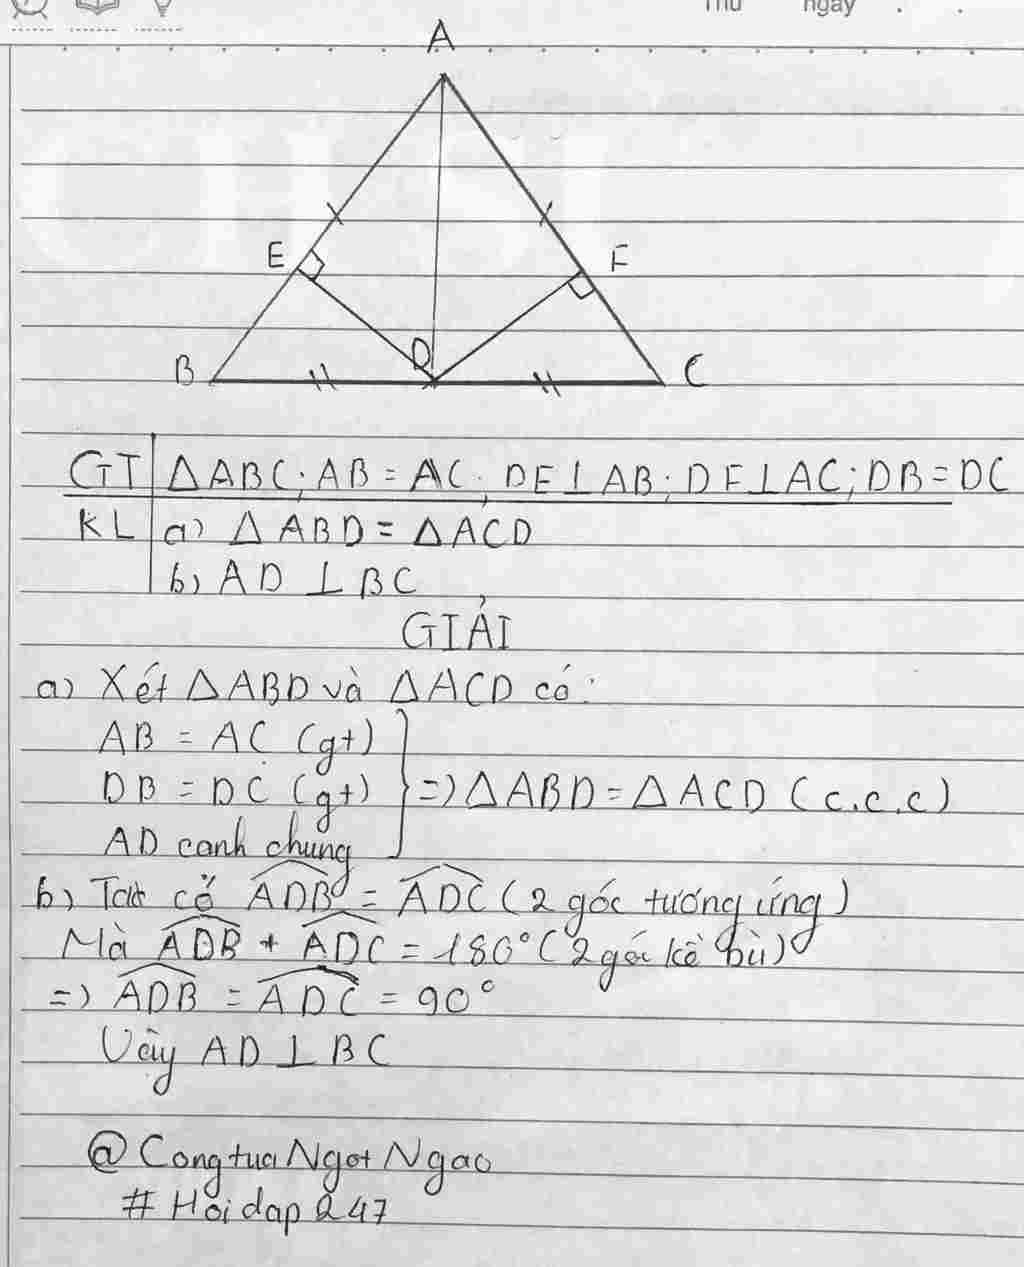 Thứ ngày . .
A
E F
B D C
GT ΔABC; AB = AC; DE⊥AB; DF⊥AC; DB=DC
KL a) ΔABD = ΔACD
b) AD ⊥ BC
GIẢI
a) Xét ΔABD và ΔACD có:
AB = AC (gt)
DB = DC (gt) => ΔABD = ΔACD (c.c.c)
AD canh chung
b) Ta có ADB = ADC (2 góc tương ứng)
Mà ADB + ADC = 180° (2 góc kề bù)
=> ADB = ADC = 90°
Vậy AD ⊥ BC
@ Congtua Ngot Ngao
# Hoidap 247